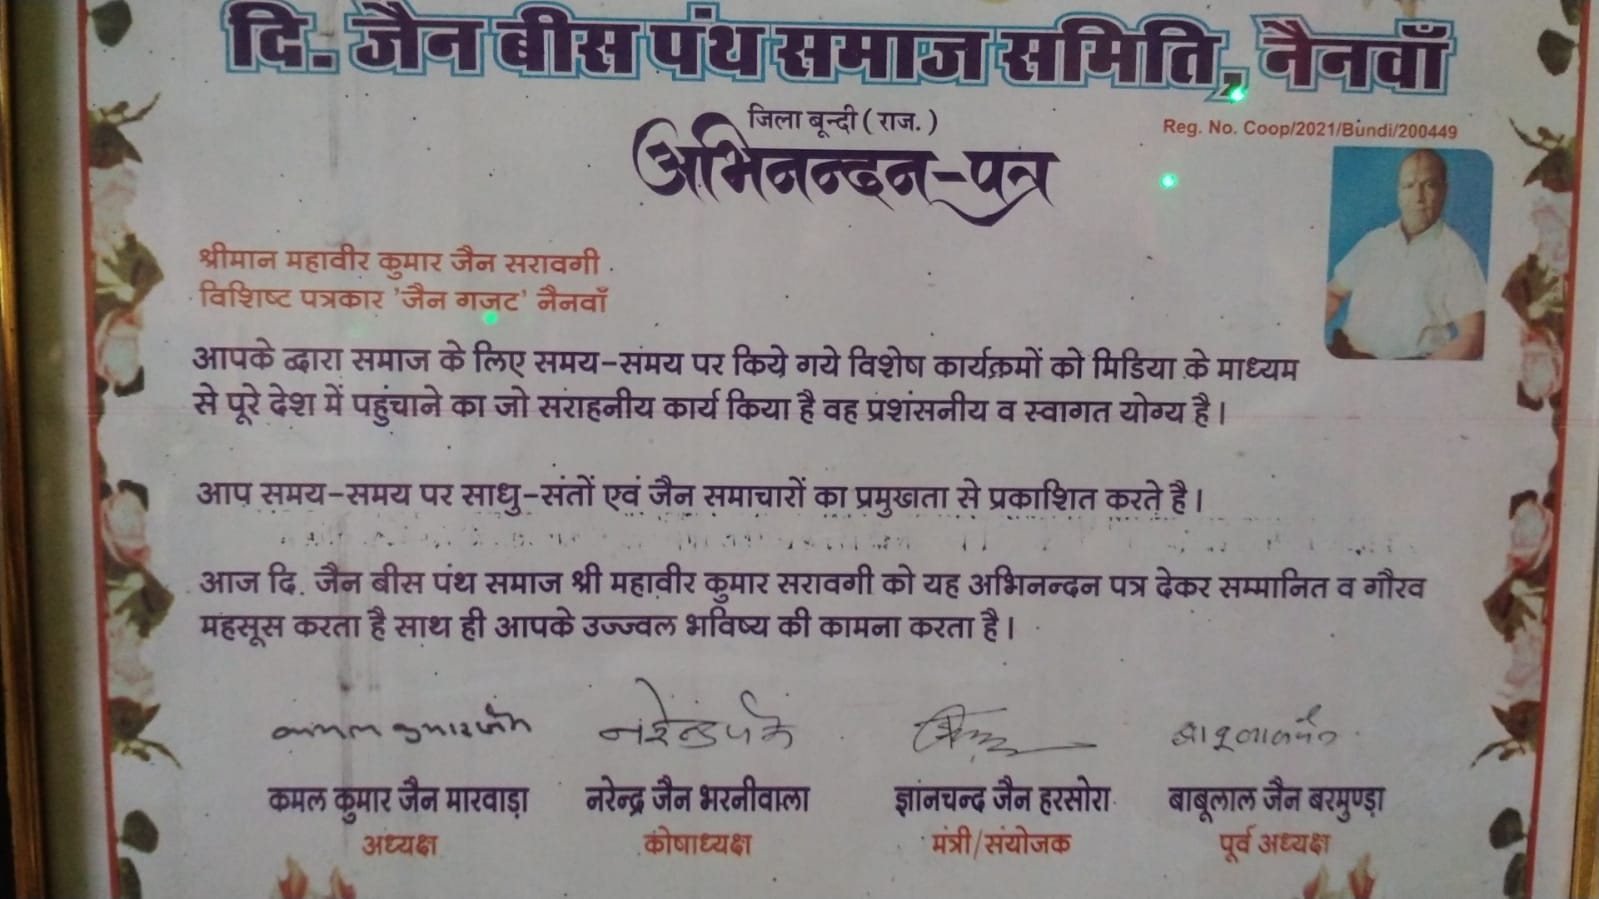 दि. जैन बीस पंथ समाज समिति, नैनवाँ
जिला बून्दी ( राज. )
Reg. No. Coop/2021/Bundi/200449
अभिनन्दन-पत्र
श्रीमान महावीर कुमार जैन सरावगी
विशिष्ट पत्रकार 'जैन गजट' नैनवाँ
आपके द्वारा समाज के लिए समय-समय पर किये गये विशेष कार्यक्रमों को मिडिया के माध्यम
से पूरे देश में पहुंचाने का जो सराहनीय कार्य किया है वह प्रशंसनीय व स्वागत योग्य है।
आप समय-समय पर साधु-संतों एवं जैन समाचारों का प्रमुखता से प्रकाशित करते है।
आज दि. जैन बीस पंथ समाज श्री महावीर कुमार सरावगी को यह अभिनन्दन पत्र देकर सम्मानित व गौरव
महसूस करता है साथ ही आपके उज्ज्वल भविष्य की कामना करता है।
कमल कुमार जैन नरेन्द्र जैन बाबूलाल जैन
कमल कुमार जैन मारवाड़ा नरेन्द्र जैन भरनीवाला ज्ञानचन्द जैन हरसोरा बाबूलाल जैन बरमुण्डा
अध्यक्ष कोषाध्यक्ष मंत्री/संयोजक पूर्व अध्यक्ष